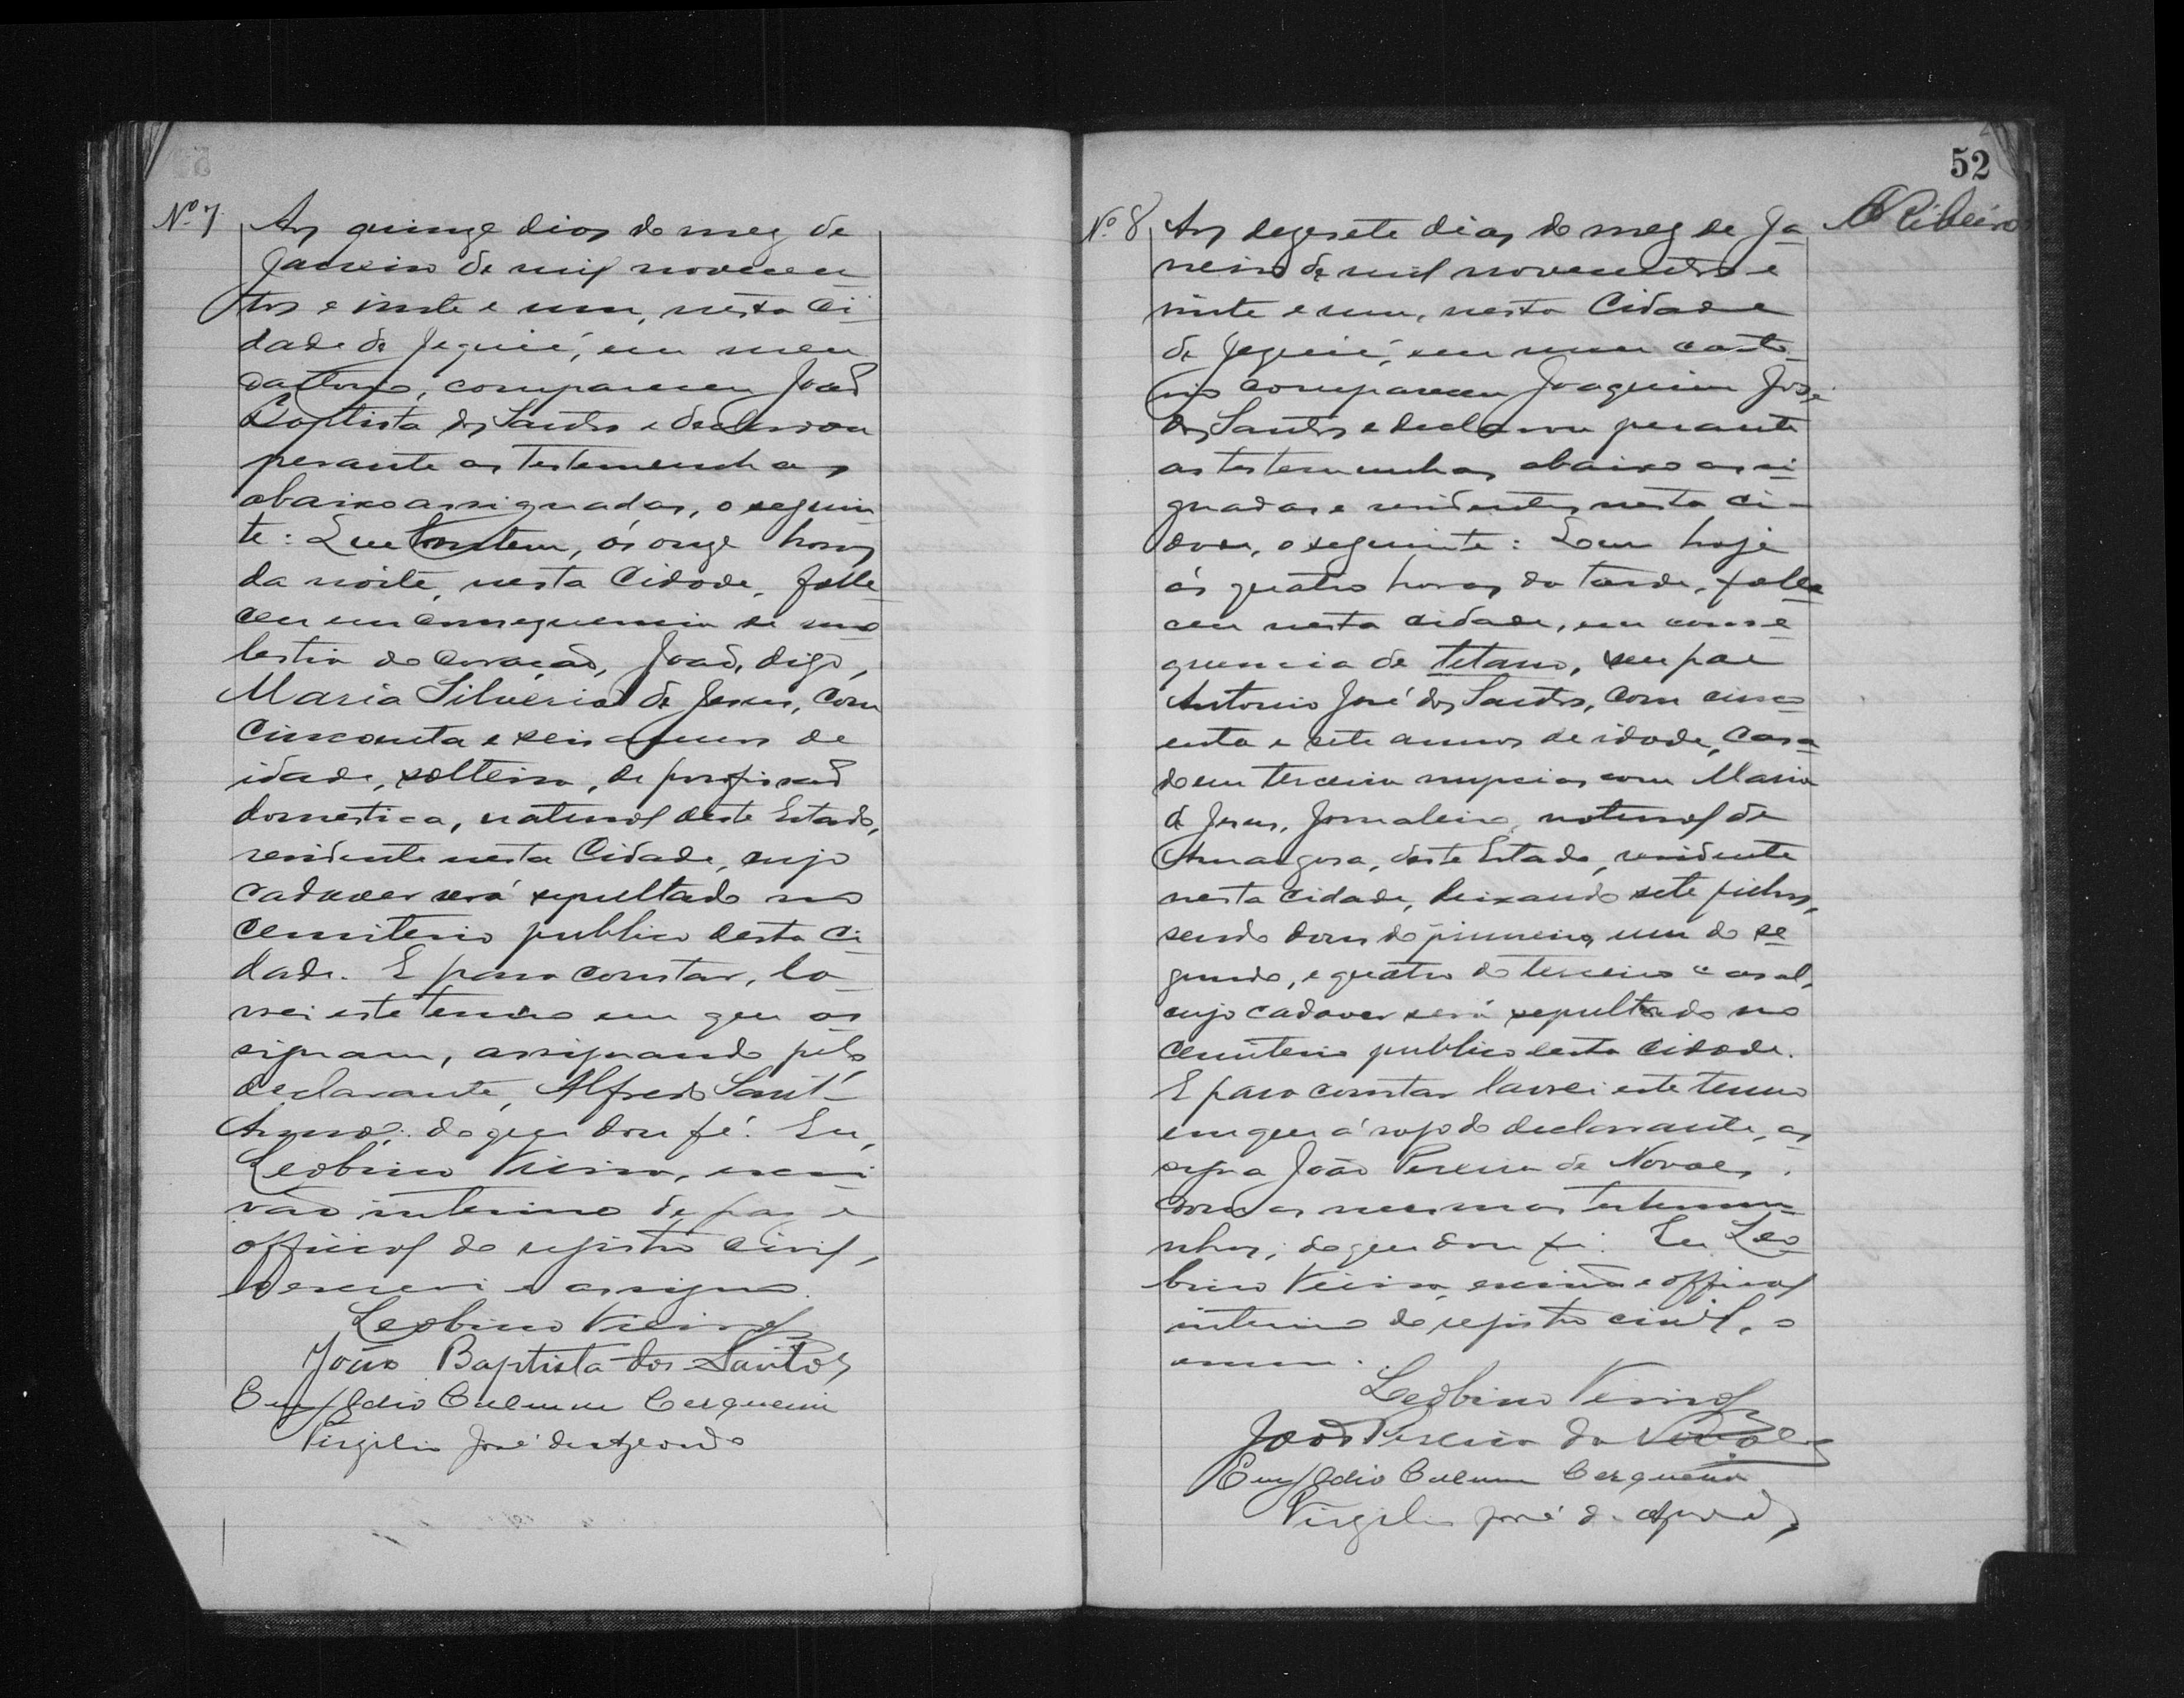 Nº 7
Aos quinze dias do mez de
Janeiro de mil novecen-
tos e vinte e um, nesta Ci-
dade de Jequié, em meu
cartorio, compareceu João
Baptista dos Santos e declarou
perante as testemunhas
abaixo assignadas, o seguin-
te: Que hontem, ás onze horas
da noite, nesta Cidade, falle-
ceu em consequencia de mo-
lestia do coração, João, digo,
Maria Silveria de Jesus, com
cincoenta e seis annos de
idade, solteira, de profissão
domestica, natural deste Estado,
residente nesta Cidade, cujo
cadaver será sepultado no
cemiterio publico desta ci-
dade. E para constar, la-
vrei este termo em que as
signam, assignando pelo
declarante, Alfredo Sant'
Anna, do que dou fé. Eu,
Leobino Vieira, escri-
vão interino de paz e
official do registro civil,
o escrevi e assigno.
Leobino Vieira
João Baptista dos Santos
Cerqueira
Virgilio José de Azevedo
52
Ribeiro
Nº 8
Aos dezesete dias do mez de Ja-
neiro de mil novecentos e
vinte e um, nesta Cidade
de Jequié, em meu carto-
rio compareceu Joaquim José
dos Santos e declarou perante
as testemunhas abaixo assi-
gnadas e residentes nesta ci-
dade, o seguinte: Que hoje
ás quatro horas da tarde, falle-
ceu nesta cidade, em conse-
quencia de tetano, seu pae
Antonio José dos Santos, com cinco-
enta e sete annos de idade, casa-
do em terceira nupcias com Maria
de Jesus, jornaleiro, natural de
Amargosa, deste Estado, residente
nesta cidade, deixando sete filhos,
sendo dous do primeiro, um do se-
gundo, e quatro do terceiro casal,
cujo cadaver será sepultado no
cemiterio publico desta cidade.
E para constar lavrei este termo
em que á rogo do declarante, as
signa João Pereira de Novaes,
com as mesmas testemu-
nhas, do que dou fé. Eu Leo-
bino Vieira, escrivão e official
interino do registro civil, o
escrevi.
Leobino Vieira
João Pereira de Novaes
Cerqueira
Virgilio José de Azevedo